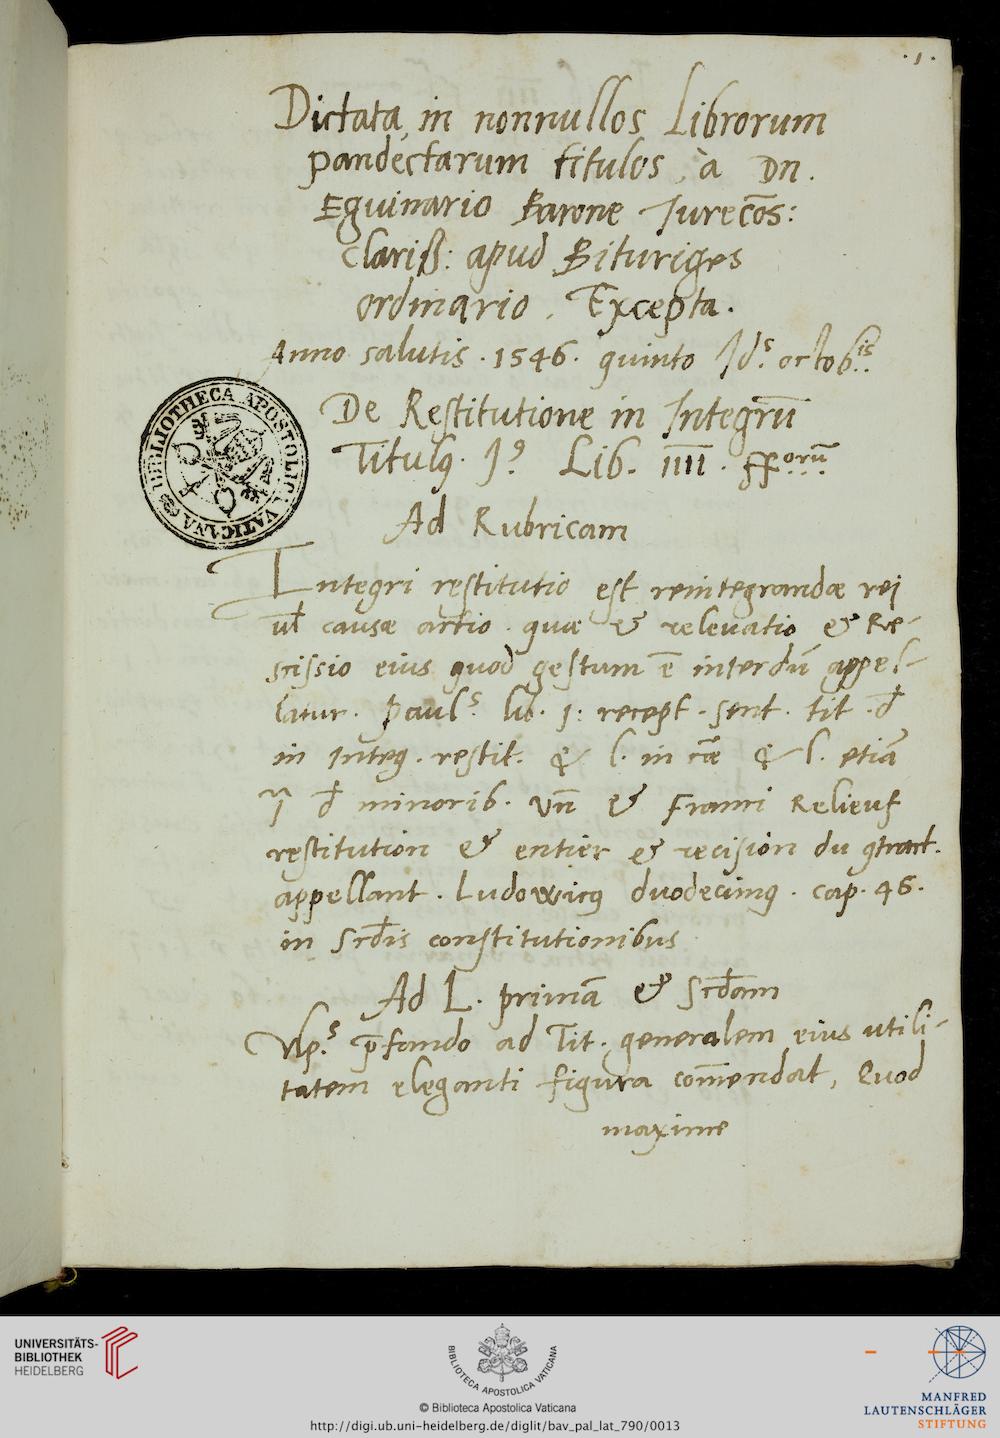 .1.
Dictata in nonnullos Librorum
pandectarum titulos, à Dn.
Eguinario Barone Jurecōs:
clariß: apud Bituriges
ordinario. Excepta.
Anno salutis. 1546. quinto Idˢ. octobⁱˢ.
De Restitutione in Integrū
Titulꝰ. Iꝰ Lib. IIII. ff.orū
BIBLIOTHECA APOSTOLICA VATICANA
Ad Rubricam
Integri restitutio est reintegrandæ rei
ul̄ causæ actio. quæ & relevatio & Re-
scissio eius quod gestum ē interdū appel-
latur. Paulˢ. lib. 1. recept. sent. tit. d̄
in Integ. restit. & l. in cāe & l. etiā
d̄ minorib. Vn̄ & Franci Relieuf
restitution & entier & recision du 9tract.
appellant. Ludowicꝰ duodecimꝰ. cap. 46.
in Scd̄is constitutionibus
Ad L. primā & Scd̄am
Vlp.ˢ p̄fando ad Tit. generalem eius utili-
tatem eleganti figura com̄endat, Quod
maxime
UNIVERSITÄTS-
BIBLIOTHEK
HEIDELBERG
BIBLIOTECA APOSTOLICA VATICANA
© Biblioteca Apostolica Vaticana
http://digi.ub.uni-heidelberg.de/diglit/bav_pal_lat_790/0013
MANFRED
LAUTENSCHLÄGER
STIFTUNG